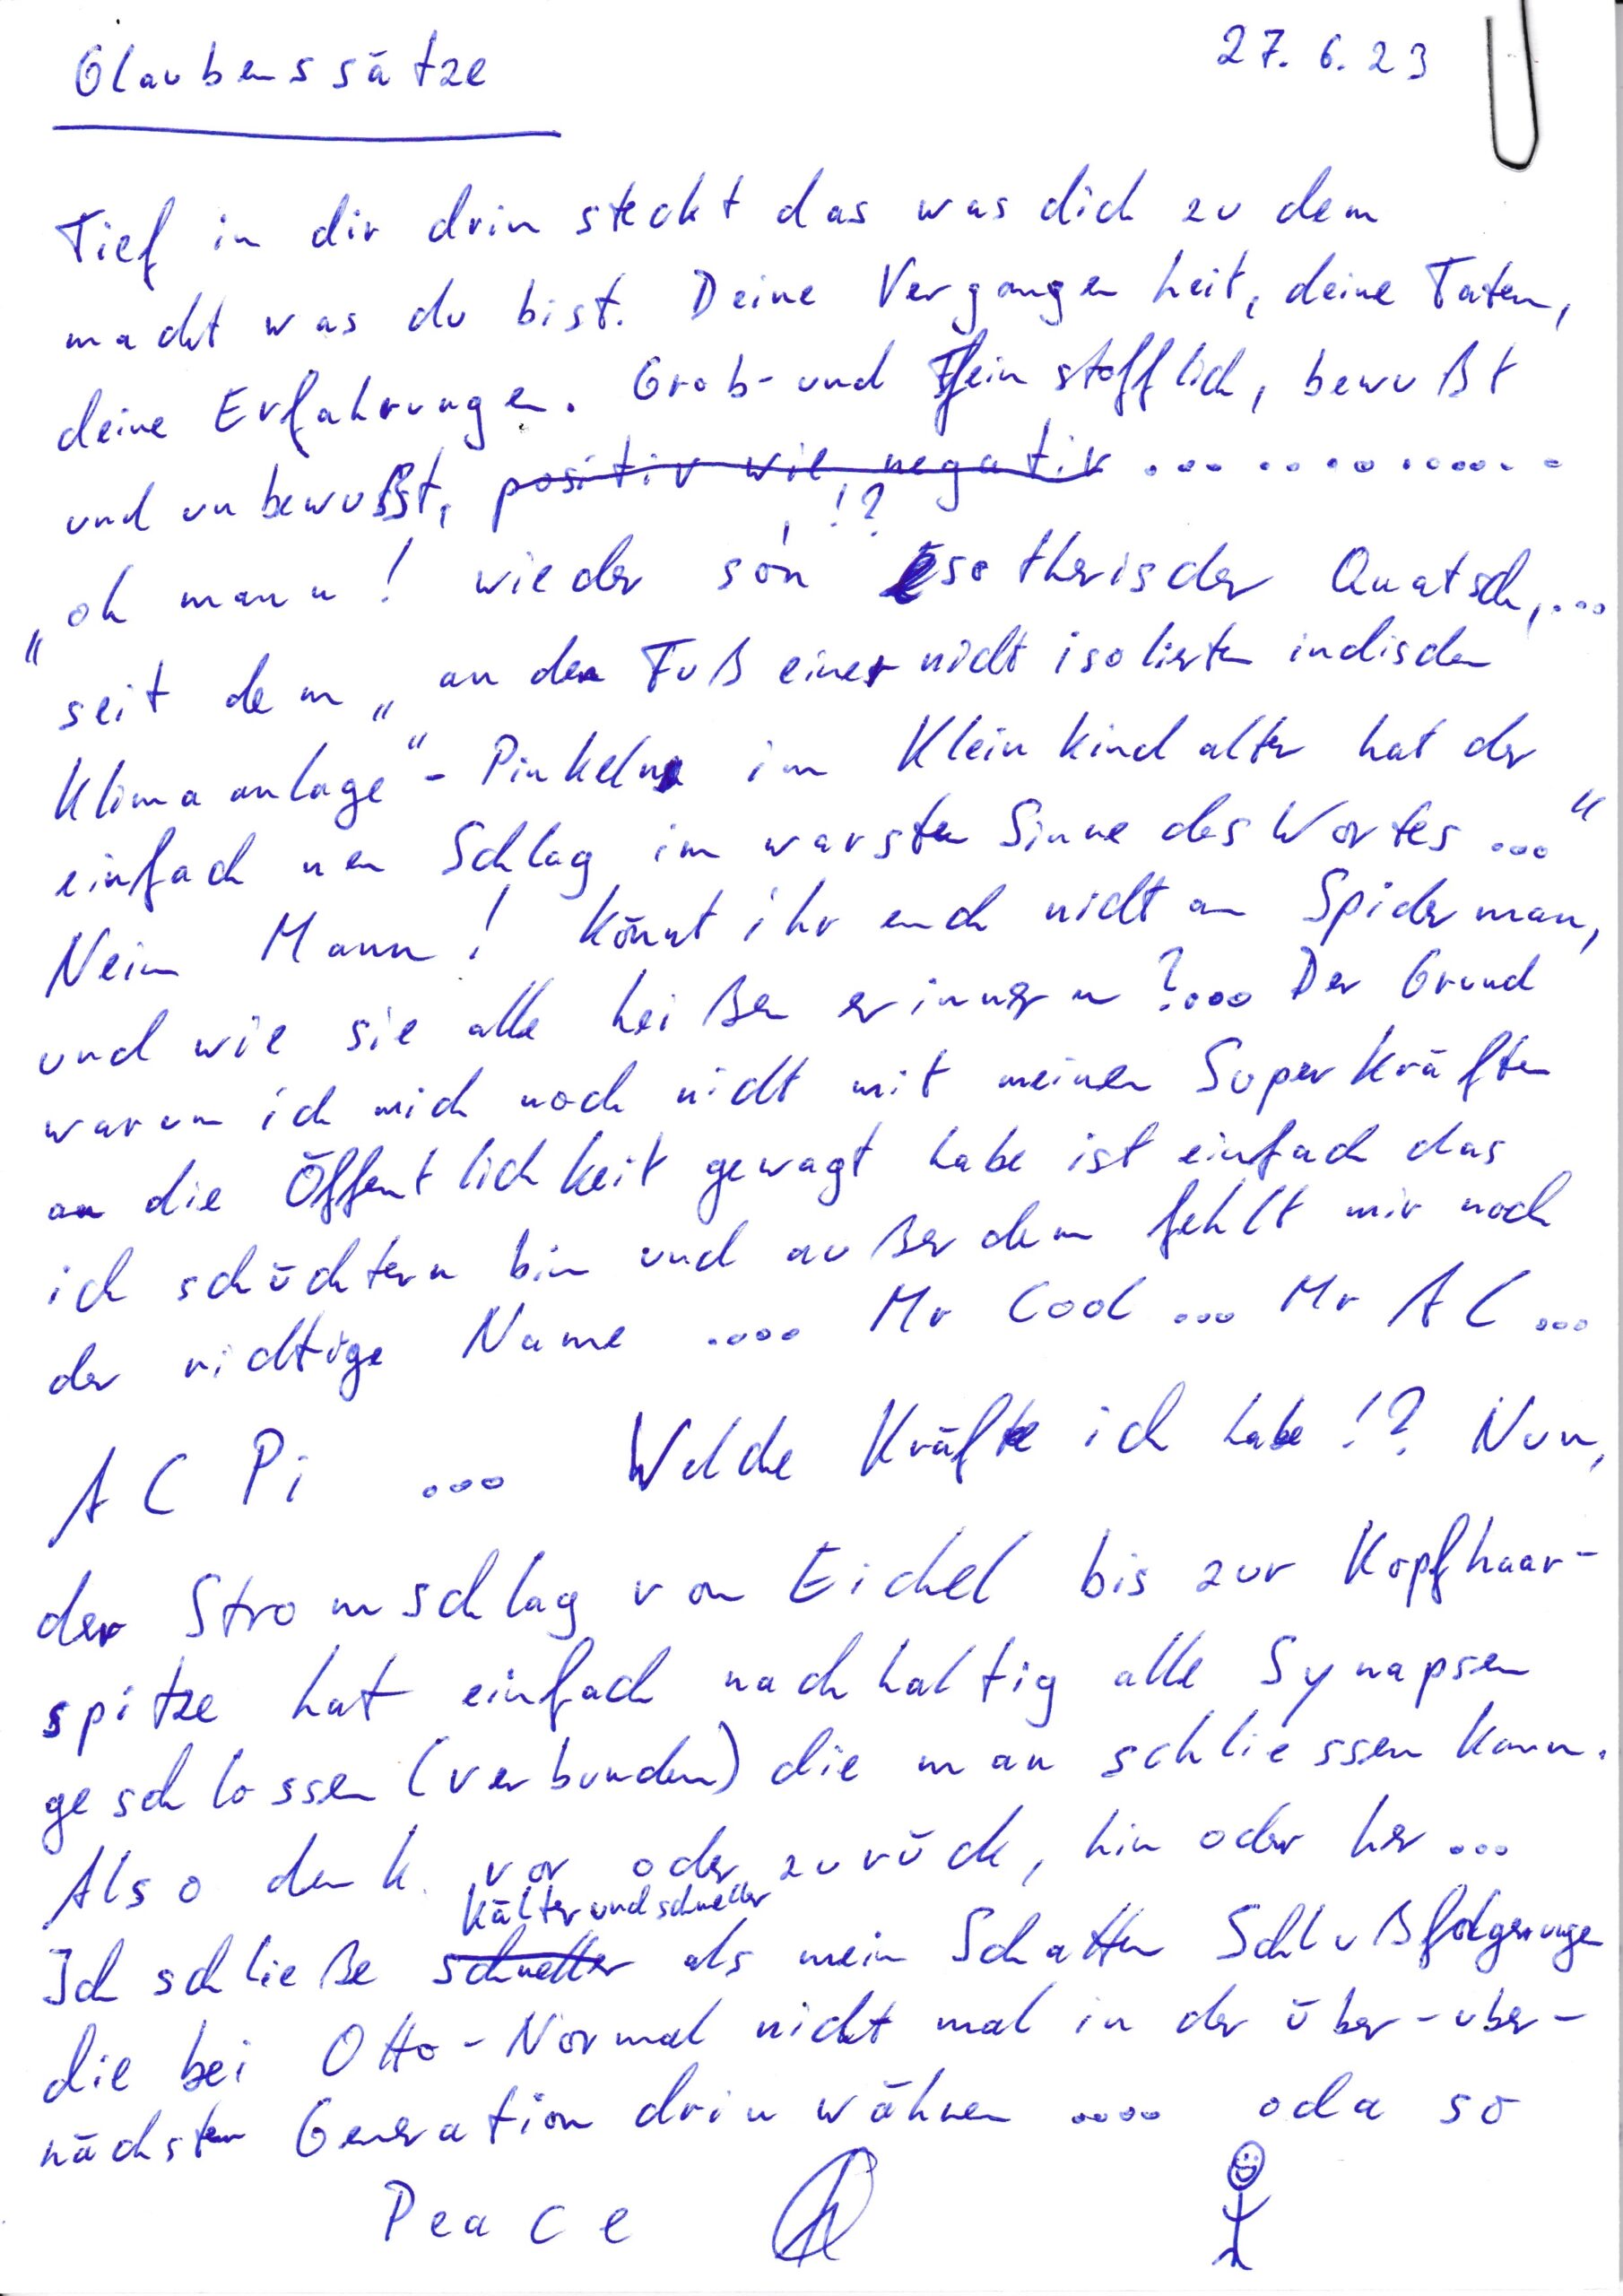 Glaubenssätze
27. 6. 23
Tief in dir drin steckt das was dich zu dem
macht was du bist. Deine Vergangenheit, deine Taten,
deine Erfahrungen. Grob- und Feinstofflich, bewußt
und unbewußt, positiv wie negativ ... .............
!?
"oh mann! wieder so'n Esotherischer Quatsch,...
seit dem "an den Fuß einer nicht isolierten indischen
Klimaanlage"- Pinkeln im Kleinkindalter hat der
einfach nen Schlag im warsten Sinne des Wortes ..."
Nein Mann! Könnt ihr euch nicht an Spiderman,
und wie sie alle heißen erinnern?... Der Grund
warum ich mich noch nicht mit meinen Superkräften
an die Öffentlichkeit gewagt habe ist einfach das
ich schüchtern bin und außerdem fehlt mir noch
der richtige Name .... Mr Cool ... Mr AC ...
AC Pi ... Welche Kräfte ich habe!? Nun,
der Stromschlag von Eichel bis zur Kopfhaar-
spitze hat einfach nachhaltig alle Synapsen
geschlossen (verbunden) die man schliessen kann.
Also denk vor oder zurück, hin oder her ...
Kälter und schneller
Ich schließe schneller als mein Schatten Schlußfolgerungen
die bei Otto-Normal nicht mal in der über-über-
nächsten Generation drin wähnen .... oda so
Peace